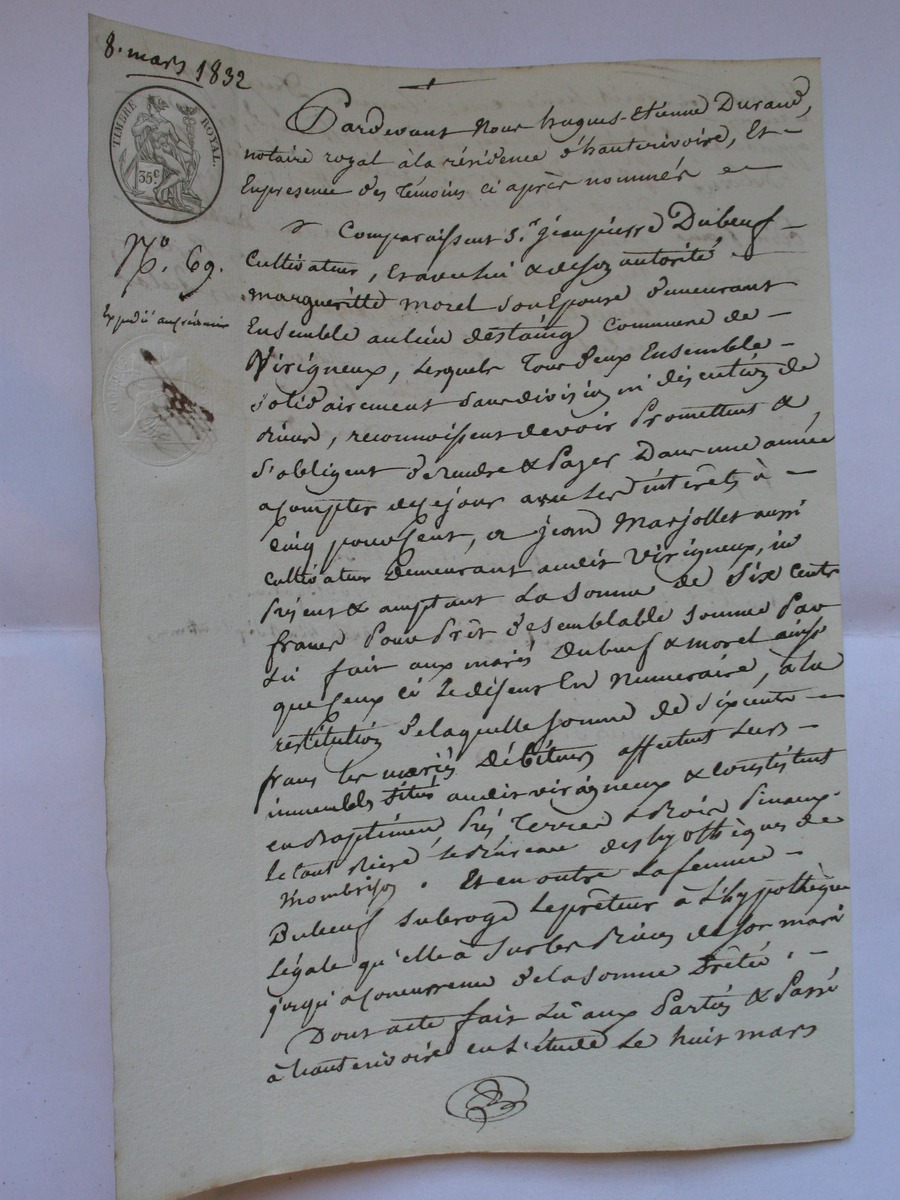 8. mars 1832
TIMBRE ROYAL.
35c
No. 69.
Pardevant Nous hugues-Etienne Durand,
notaire royal à la résidence d'hauterivoire, Et
En presence des Témoins ci après nommés
Comparaissent Sr. jean pierre Dubeuf
Cultivateur, et avec lui & de son autorité
margueritte morel son Epouse demeurant
Ensemble au lieu destaing Commune de
Virigneux, Lesquels Tous deux Ensemble
Solidairement sans division ni discution de
, reconnoissent devoir Promettent &
s'obligent de rendre & Payer Dans une année
a compter de ce jour avec les intérêts à
Cinq pour cent, a jean Marjollet aussi
cultivateur Demeurant audit Virigneux, ici
Présent & acceptant La Somme de Six Cents
francs Pour Prêt de semblable somme Par
Lui fait aux mariés Dubeuf & morel ainsi
que ceux ci le disent En numeraire, à la
restitution de laquelle somme de six cents
francs les mariés Débiteurs affectent Leurs
immeubles situés audit virigneux & consistent
en Prés Terres & Bois Pinaux
Le tout Bureau des hypothèques de
Montbrison. Et en outre La femme
Dubeuf Subroge Leprêteur à L'hypothèque
Légale qu'elle à sur les Biens de son mari
jusqu'a concurrence de la somme Prêtée.
Dont acte fait Lû aux Parties & Passé
à hauterivoire en L'étude Le huit mars